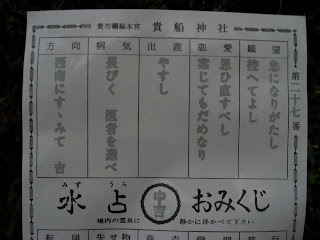 貴船神社
第二十七番
願望
急になりがたし
控へてよし
恋愛
思ひ直すべし
案じてもだめなり
出産
やすし
病気
長びく 医者を選べ
方向
西南にすゝみて 吉
水占
みずうら
中吉
おみくじ
境内の霊泉に
静かに浮かべて下さい
転居
失せ物
商売